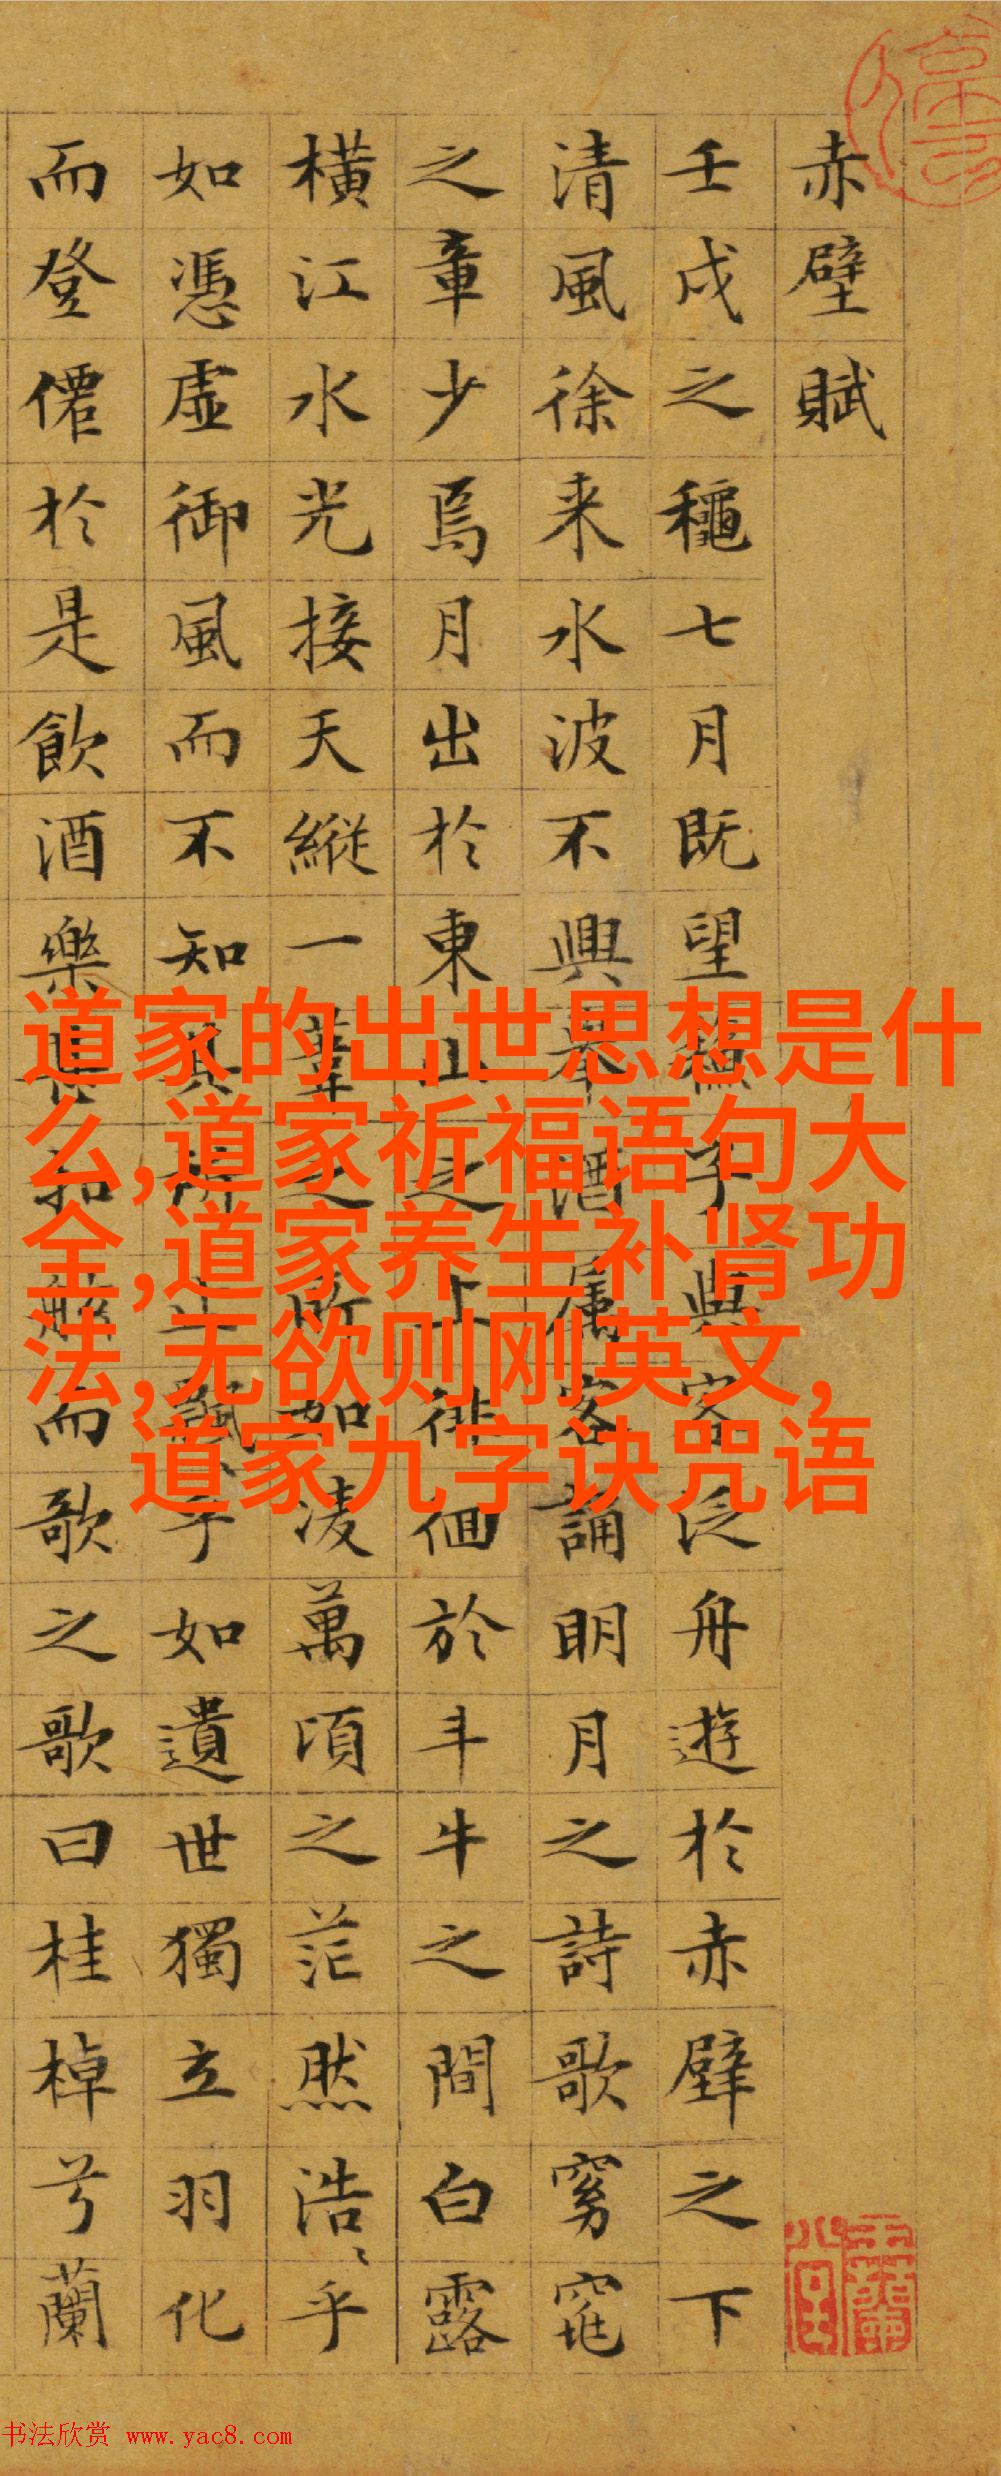 赤壁賦
壬戌之穐七月既望蘇子與客泛舟遊於赤壁之下
清風徐来水波不興舉酒属客誦明月之詩歌窈窕
之章少焉月出於東山之上徘徊於斗牛之間白露
橫江水光接天縱一葦之所如凌萬頃之茫然浩〻乎
如憑虛御風而不知其所止飄〻乎如遺世獨立羽化
而登僊於是飲酒樂甚扣舷而歌之歌曰桂棹兮蘭
道家的出世思想是什
么,道家祈福语句大
全,道家养生补肾功
法,无欲则刚英文,
道家九字诀咒语
书法欣赏 www.yac8.com